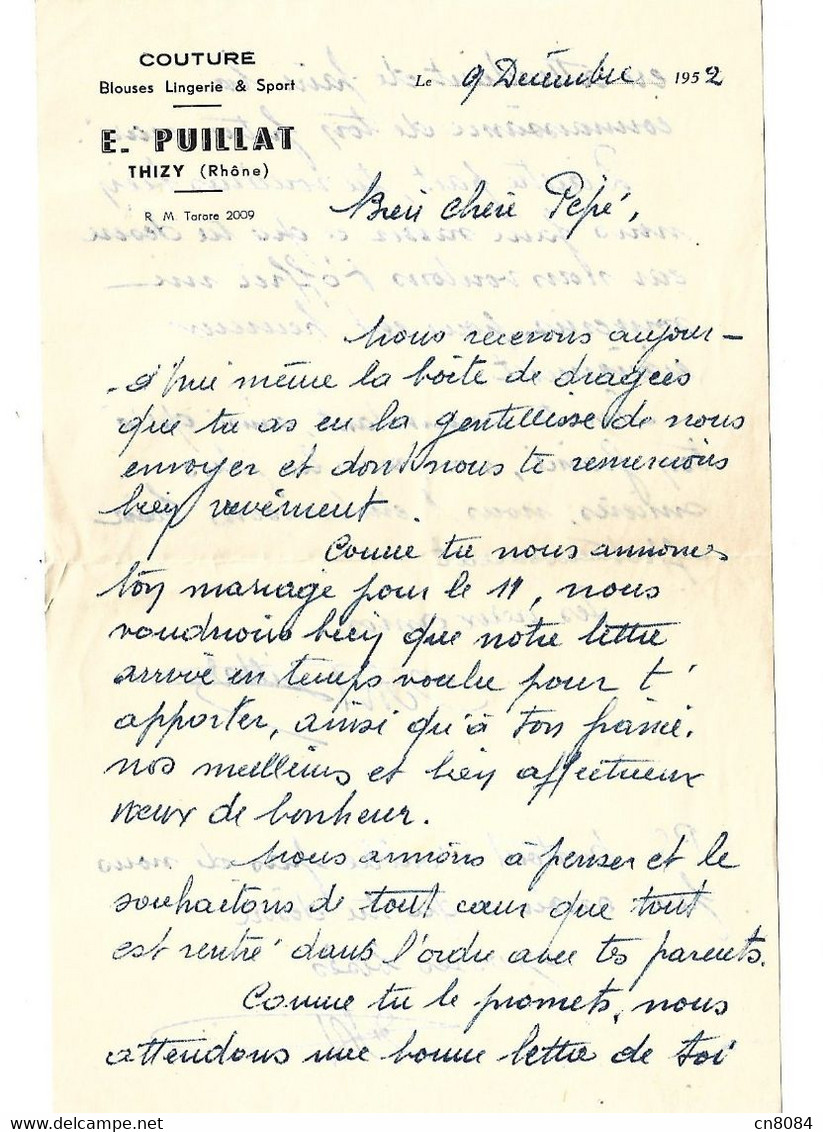 COUTURE
Blouses Lingerie & Sport
E. PUILLAT
THIZY (Rhône)
R M Tarare 2009
Le 9 Décembre 1952
Bien chère Pépé,
Nous recevons aujour-
d'hui même la boîte de dragées
que tu as eu la gentillesse de nous
envoyer et dont nous te remercions
bien vivement.
Comme tu nous annonces
ton mariage pour le 11, nous
voudrions bien que notre lettre
arrive en temps voulu pour t'
apporter, ainsi qu'à ton fiancé,
nos meilleurs et bien affectueux
vœux de bonheur.
Nous aimons à penser et le
souhaitons de tout cœur que tout
est rentré dans l'ordre avec tes parents.
Comme tu le promets, nous
attendons une bonne lettre de toi
cn8084